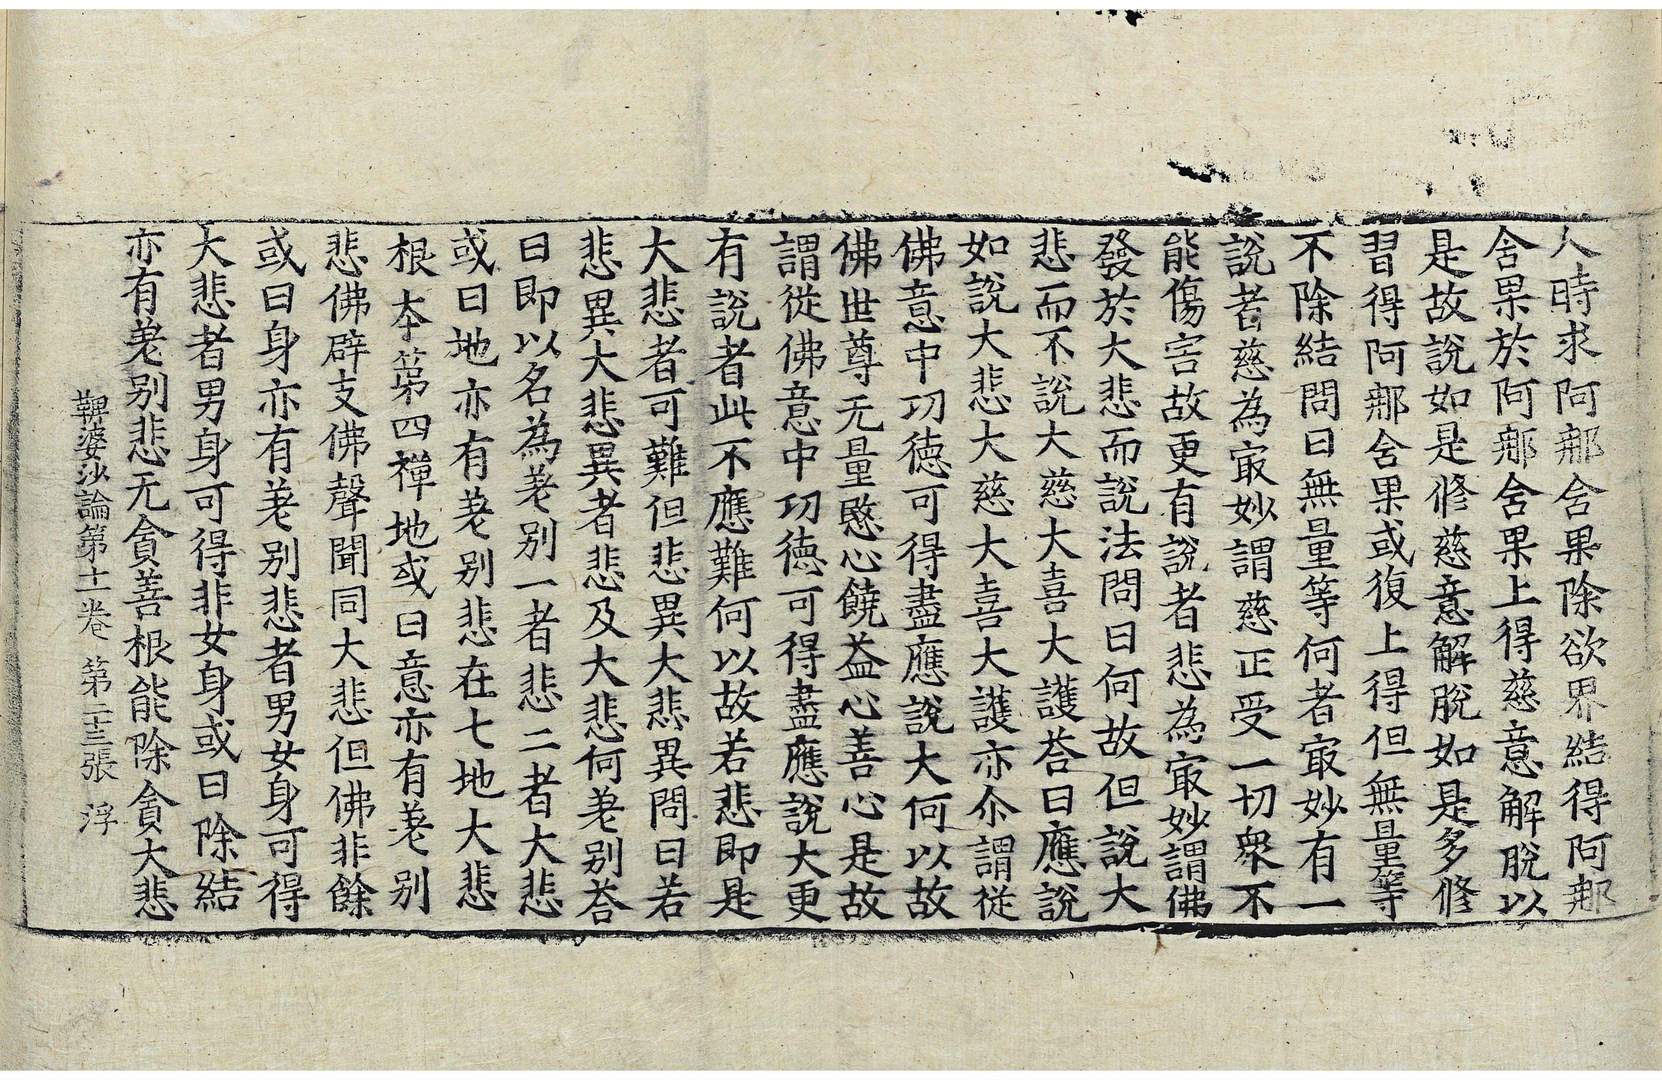 人時求阿那舍果除欲界結得阿那
舍果於阿那舍果上得慈意解脫以
是故說如是修慈意解脫如是多修
習得阿那舍果或復上得但無量等
不除結問曰無量等何者㝡妙有一
說者慈為㝡妙謂慈正受一切衆不
能傷害故更有說者悲為㝡妙謂佛
發於大悲而說法問曰何故但說大
悲而不說大慈大喜大護荅曰應說
如說大悲大慈大喜大護亦尒謂從
佛意中功德可得盡應說大何以故
佛世尊无量愍心饒益心善心是故
謂從佛意中功德可得盡應說大更
有說者此不應難何以故若悲即是
大悲者可難但悲異大悲異問曰若
悲異大悲異者悲及大悲何差别荅
曰即以名為差别一者悲二者大悲
或曰地亦有差别悲在七地大悲
根本第四禪地或曰意亦有差别
悲佛辟支佛聲聞同大悲但佛非餘
或曰身亦有差别悲者男女身可得
大悲者男身可得非女身或曰除結
亦有差别悲无貪善根能除貪大悲
鞞婆沙論第十一卷 第二十三張 浮